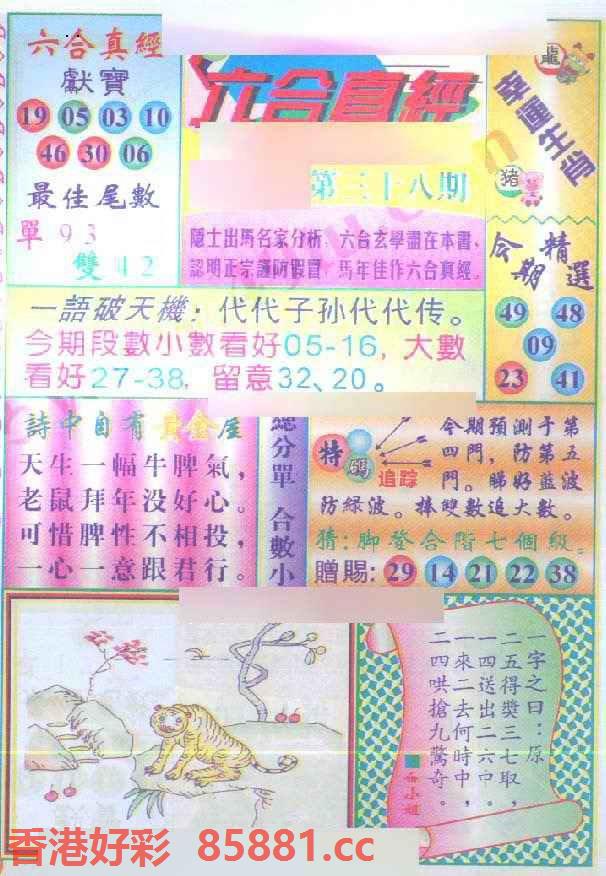 六合真經
獻寶
19 05 03 10
46 30 06
最佳尾數
單 93
雙 42
六合真經
第三十八期
隱士出馬名家分析，六合玄學盡在本書，
認明正宗謹防假冒，馬年佳作六合真經。
龍
幸運生肖
猪
今期精選
49 48
09
23 41
一語破天機：代代子孙代代传。
今期段數小數看好05-16，大數
看好27-38，留意32、20。
詩中自有黃金屋
天生一幅牛脾氣，
老鼠拜年没好心。
可惜脾性不相投，
一心一意跟君行。
總分單 合數小
特碼
追踪
今期預測于第
四門，防第五
門。睇好藍波
防綠波。捧雙數追大數。
猜：脚登合階七個級。
贈賜：29 14 21 22 38
一字之曰：原
二五得獎三七取，
一四送出二六中。
一來二去何時中，
二四哄搶九驚奇。
香港好彩 85881.cc